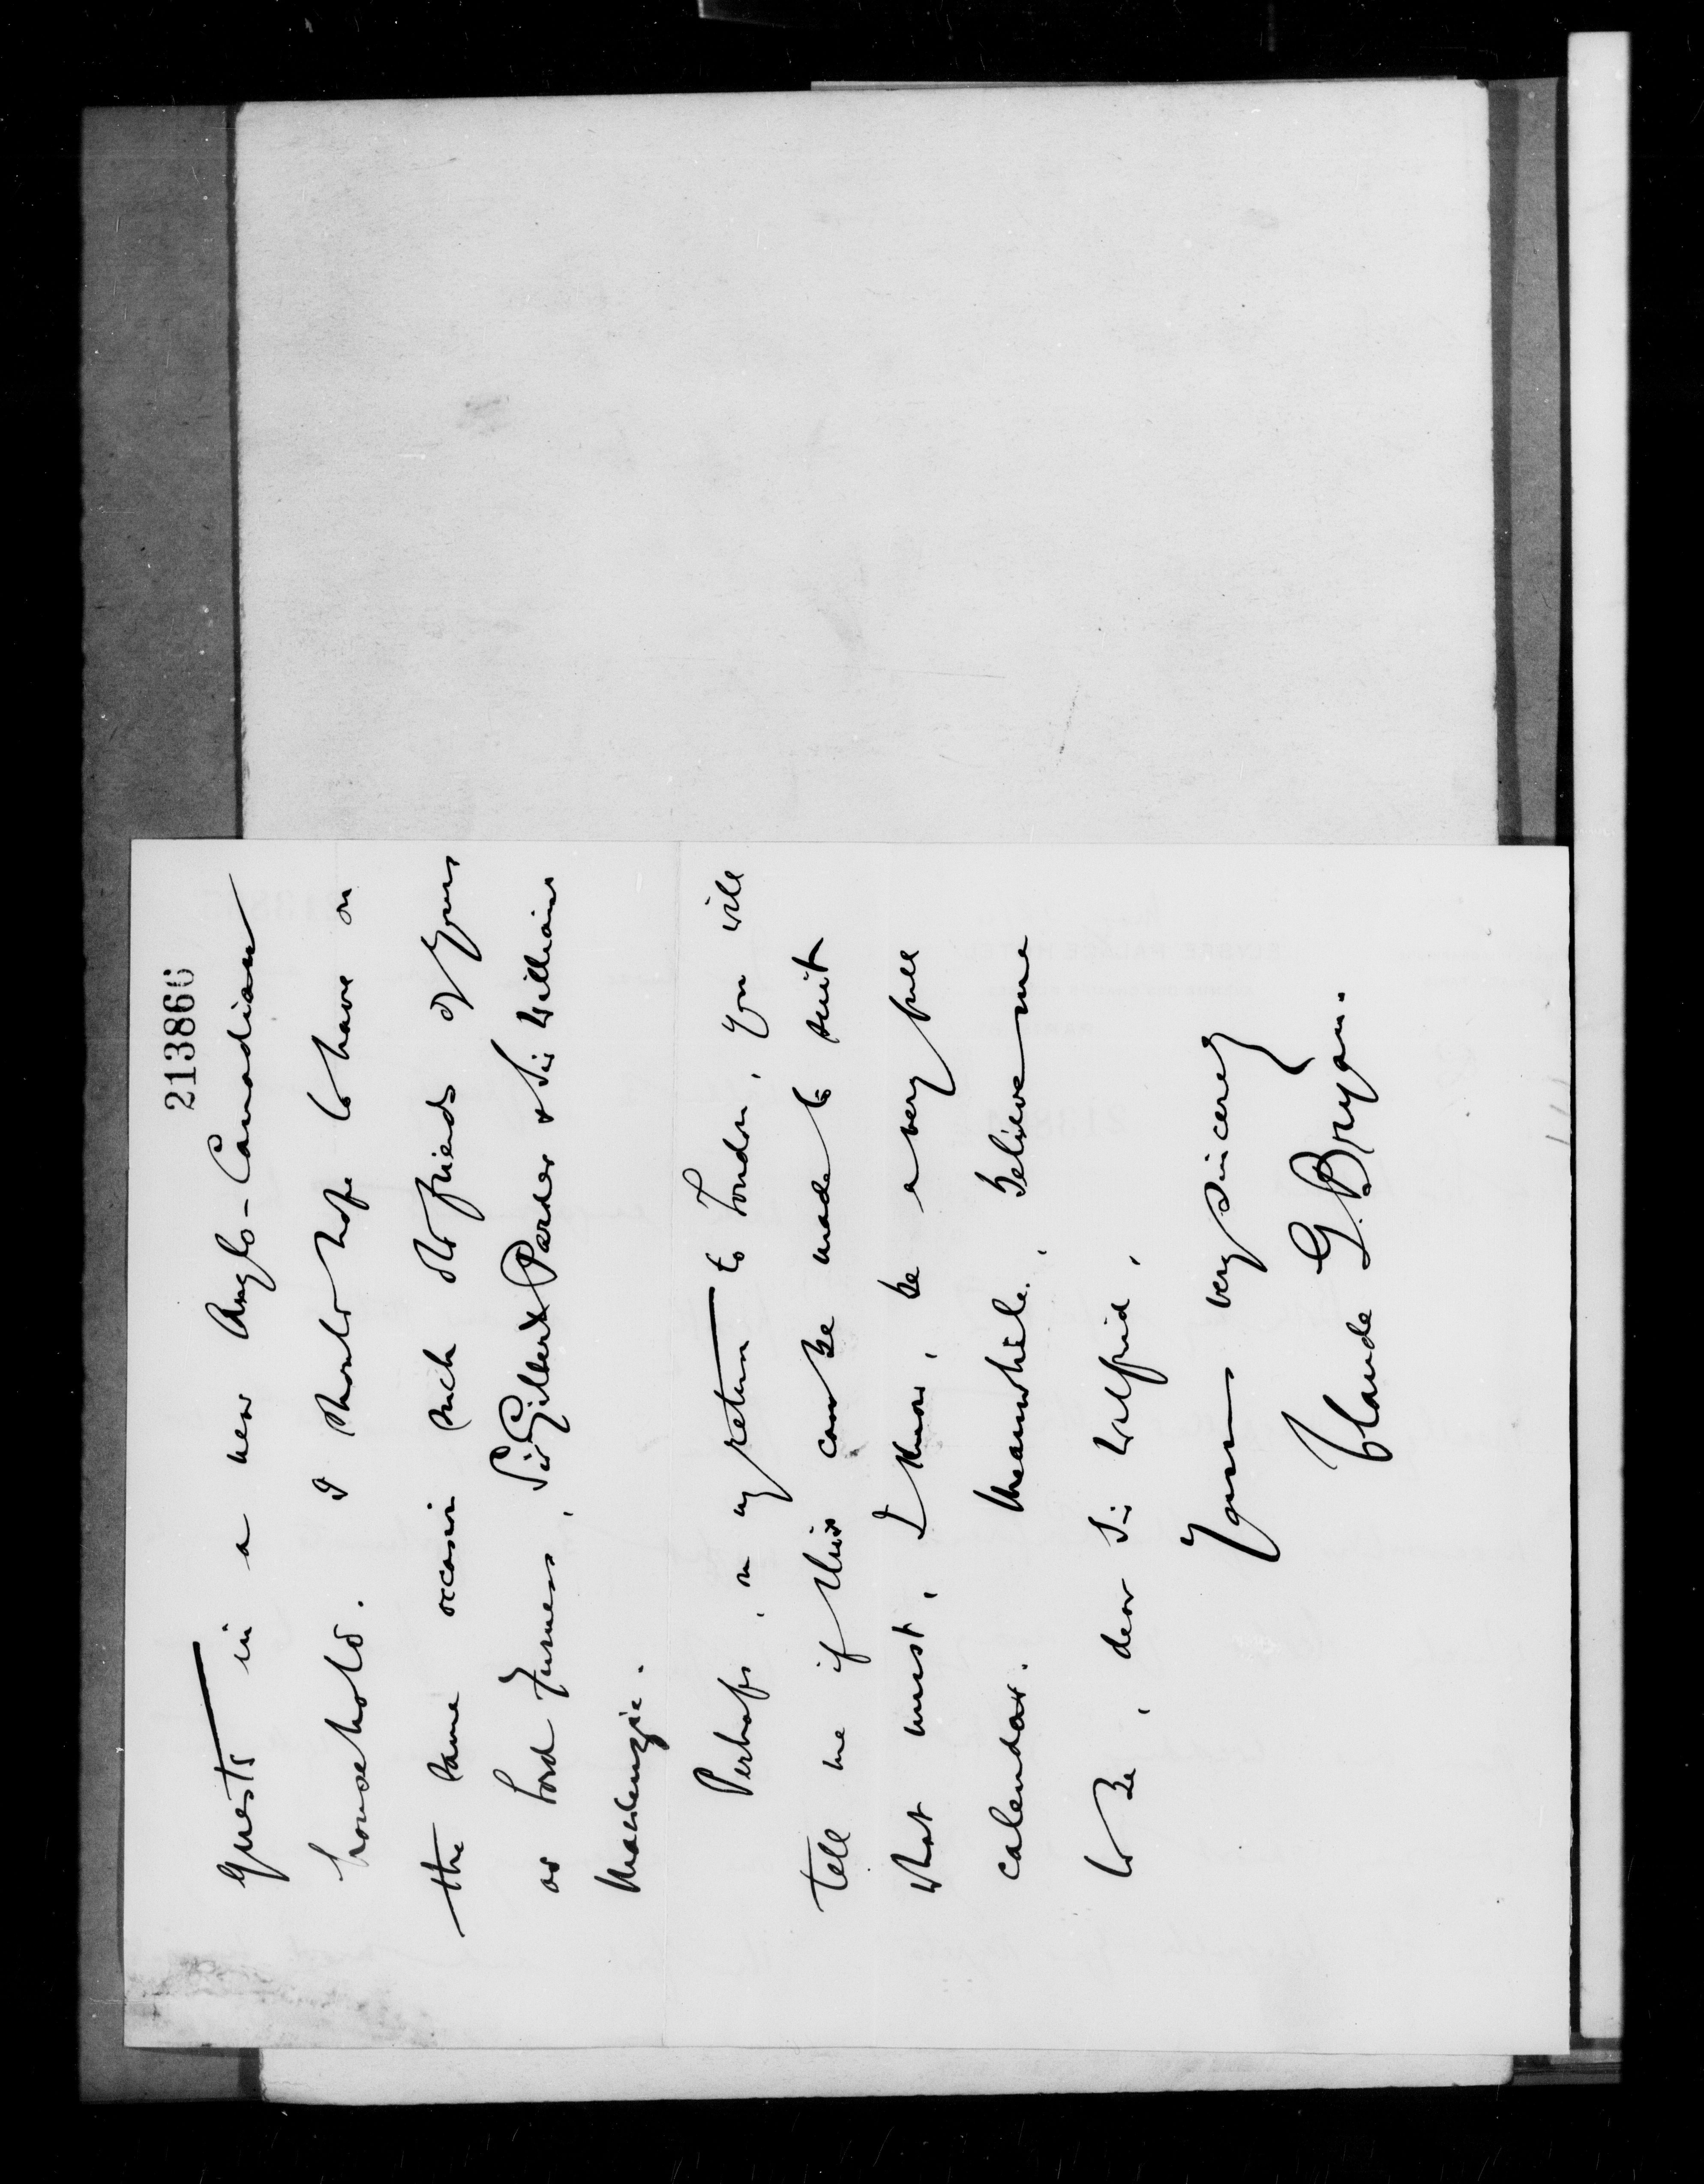 213866
guests in a new Anglo-Canadian
household. I should hope to have on
the same occasion such old friends of yours
as Lord Furness, Sir Gilbert Parker & Sir William
Mackenzie.
Perhaps, on my return to London, you will
tell me if this can be made to suit
what must, I know, be a very full
calendar. Meanwhile, believe me
to be, dear Sir Wilfrid,
Yours very sincerely
Claude G. Bryan.